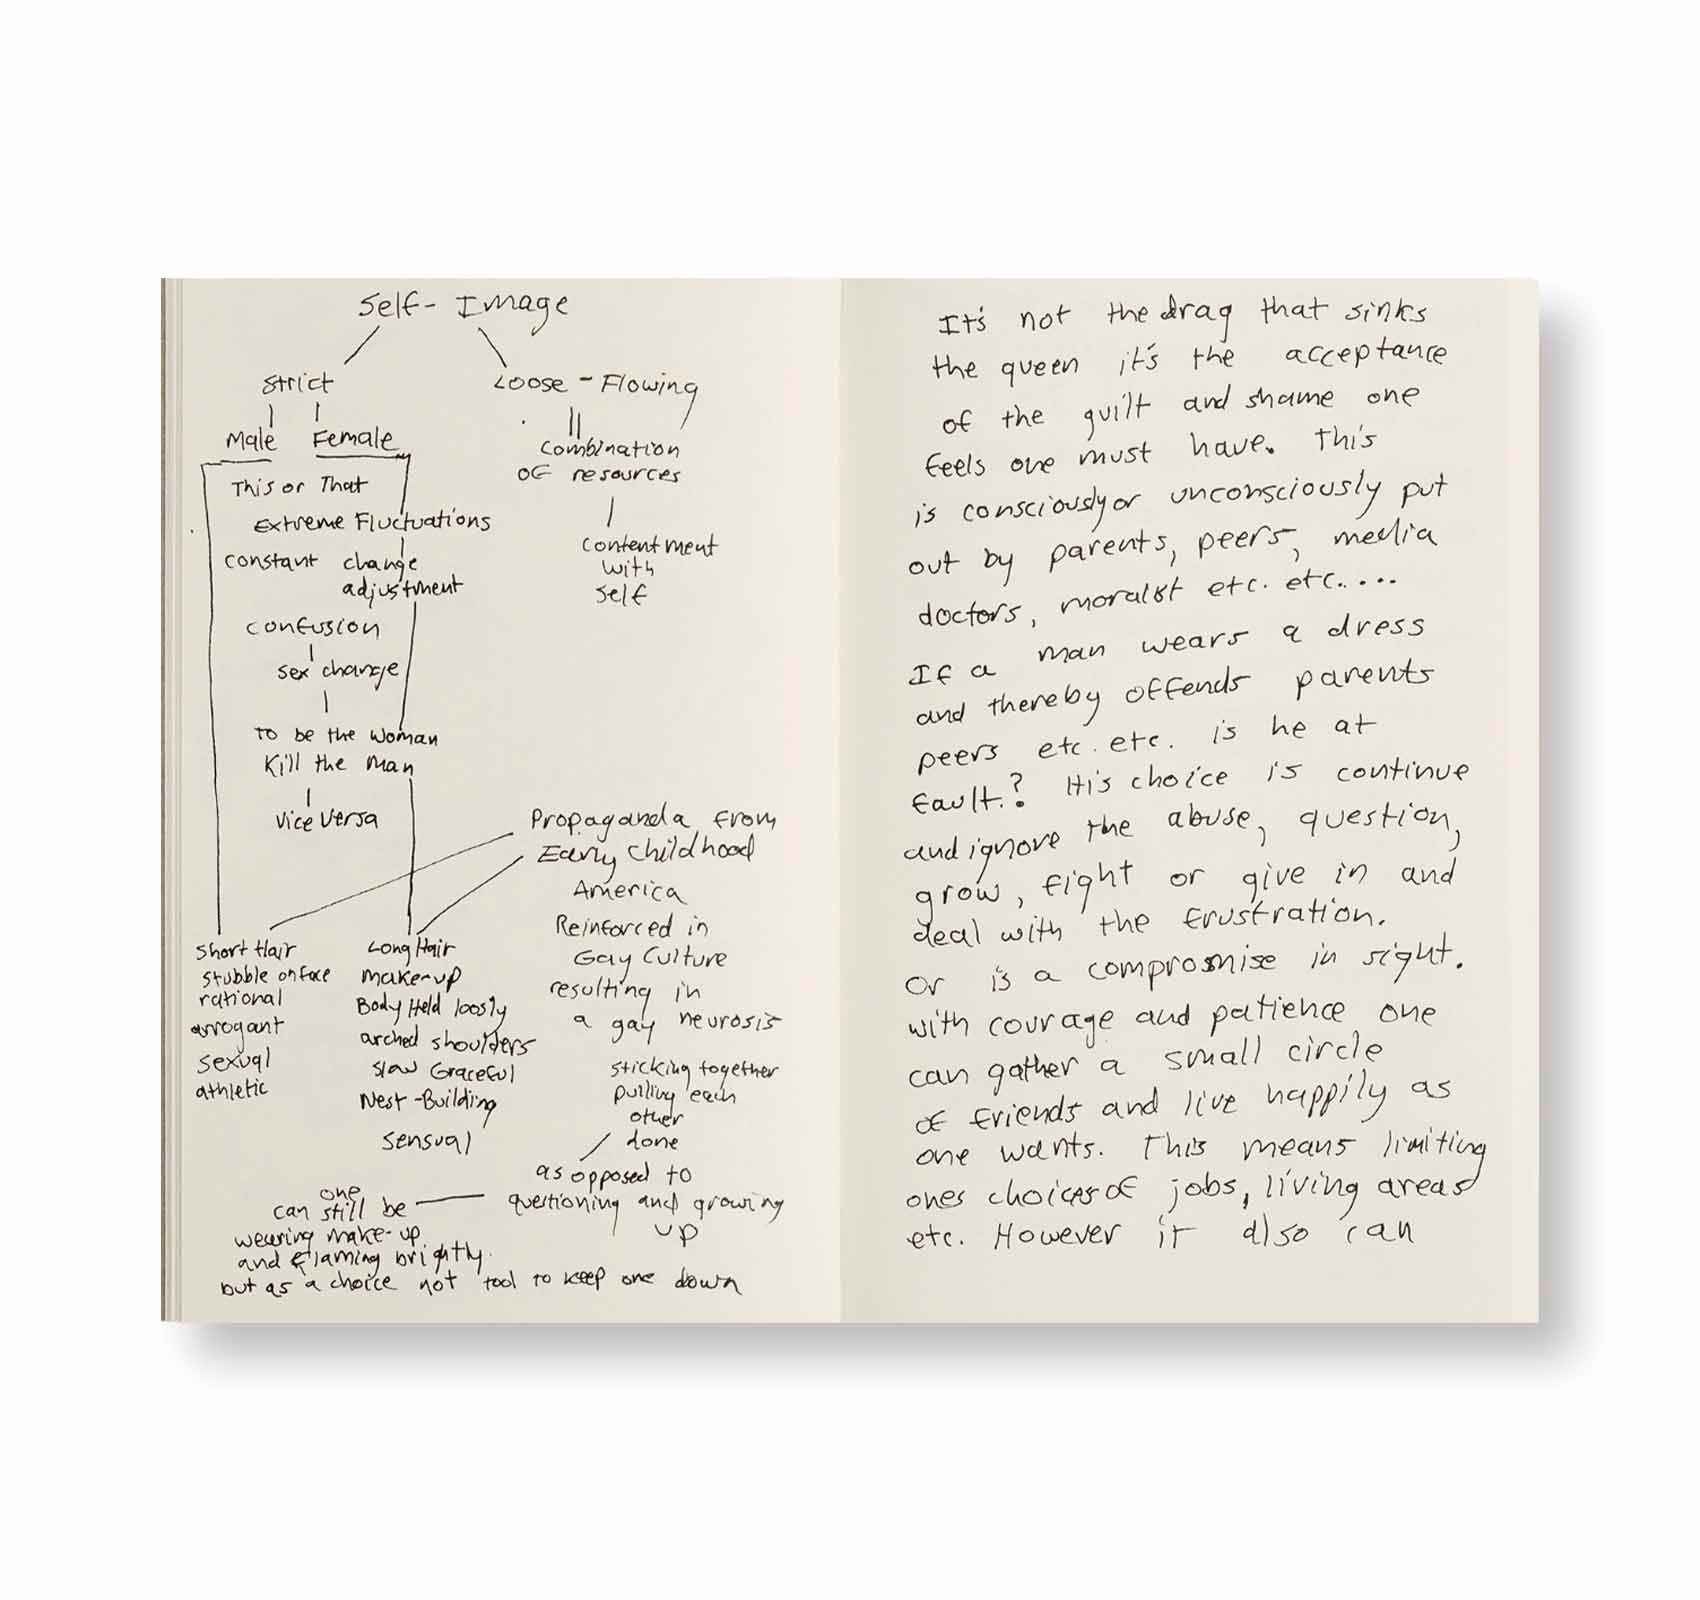 Self- Image
Strict
Male Female
This or That
Extreme Fluctuations
constant change
adjustment
confusion
sex change
to be the woman
Kill the man
vice versa
Loose - Flowing
combination
of resources
contentment
with
self
Propaganda from
Early childhood
America
Reinforced in
Gay Culture
resulting in
a gay neurosis
sticking together
pulling each
other
done
as opposed to
questioning and growing
up
short Hair
stubble on face
rational
arrogant
sexual
athletic
Long Hair
make-up
Body Held loosly
arched shoulders
slow Graceful
Nest-Building
sensual
one
can still be
wearing make-up
and flaming brightly.
but as a choice not tool to keep one down
It's not the drag that sinks
the queen it's the acceptance
of the guilt and shame one
feels one must have. This
is consciously or unconsciously put
out by parents, peers, media
doctors, moralist etc. etc.....
If a man wears a dress
and thereby offends parents
peers etc. etc. is he at
fault.? His choice is continue
and ignore the abuse, question,
grow, fight or give in and
deal with the frustration.
Or is a compromise in sight.
with courage and patience one
can gather a small circle
of friends and live happily as
one wants. This means limiting
ones choices of jobs, living areas
etc. However it also can